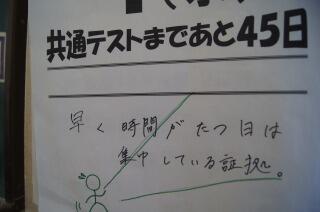 共通テストまであと45日
早く時間がたつ日は
集中している証拠。